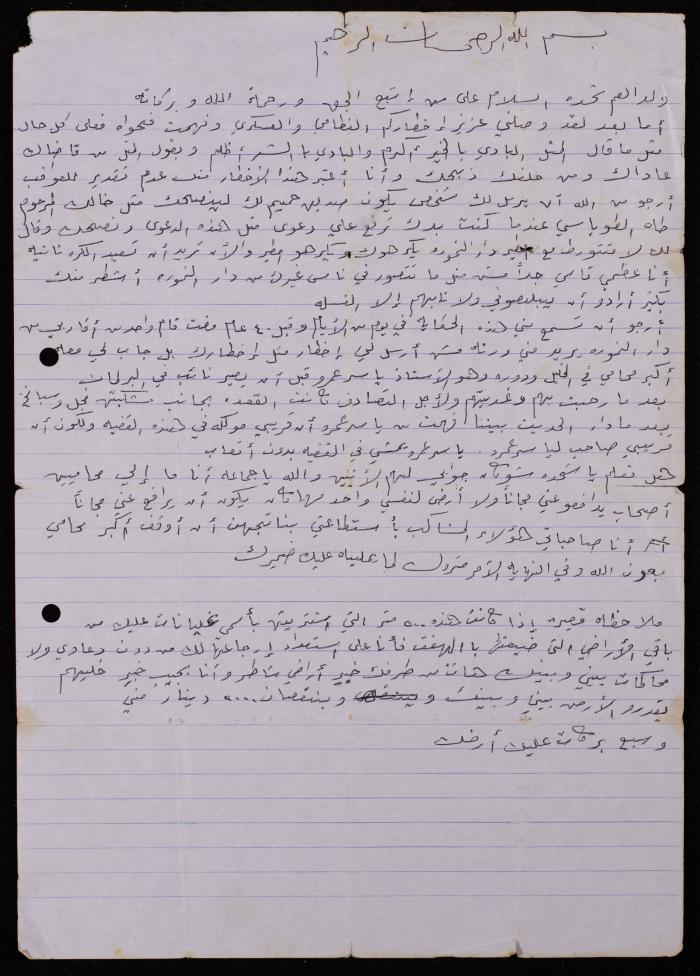 بسم الله الرحمن الرحيم
ولد العم شحده السلام على من إتبع الحق ورحمة الله وبركاته
أما بعد لقد وصلني عزيز إخطاركم النظامي والعسكري وفهمت فحواه فعلى كل حال
مثل ما قال المثل البادي بالخير أكرم والبادي بالشر أظلم وبقول المثل من قاضاك
عاداك ومن حلفك ذبحك وأنا أعتبر هذا الإخطار منك عدم تقدير للعواقب
أرجو من الله أن يرسل لك شخص يكون صديق حميم لك لينصحك مثل خالك المرحوم
طه الطوباسي عندما كنت بدك ترفع علي دعوى مثل هذه الدعوى ونصحك وقال
لك لا دار يكرهوك والآن تريد أن تعيد الكره ثانيه
أنا عظمي قاسي جداً مش مثل ما تتصور في ناس غيرك من دار أشطر منك
بكثير أرادو أن ولا نابهم إلا الفشله
أرجو أن تسمع مني هذه الحكاية في يوم من الأيام وقبل ٤٠ عام مضت قام واحد من أقاربي من
دار يريد مني ورثه مش أرسل لي إخطار مثل إخطارك بل جاب لي معاه
أكبر محامي في الخليل ودوره وهو الأستاذ ياسر عمرو قبل أن يصير نائب في البرلمان
بعد ما رحبت بهم وغديتهم ولأجل التصادف كانت القعده بجانب
بعد ما دار الحديث بيننا فهمت من ياسر عمرو أن قريبي موكله في هذه القضيه ولكون أن
قريبي صاحب لياسر عمرو ياسر عمرو بمشي في القضيه بدون أتعاب
هل تعلم يا شحده شو كان جوابي لهم الاثنين والله يا جماعه أنا ما إلي محاميين
أصحاب يدافعو عني مجاناً ولا أرضى لنفسي واحد مهما كان يكون أن يرافع عني مجاناً
أنا صاحباتي هؤلاء بأستطاعتي أن أوقف أكبر محامي
بعون الله وفي النهايه الأمر متروك لما يمليه عليك ضميرك
ملاحظه قصيره إذا كانت هذه ٥٠٠ متر التي اشتريتها بأسمي عليك من
باقي الأراضي التي ضيعتها فأنا على أستعداد إرجاعها لك من دون دعاوي ولا
محاكمات بيني وبينك هات من طرفك خبير أراضي شاطر وأنا بجيب خبير خليهم
يقدرو الأرض بيني وبينك و وبنقصان ٢٠٠٠ دينار مني
وسبع بركات عليك أرضك